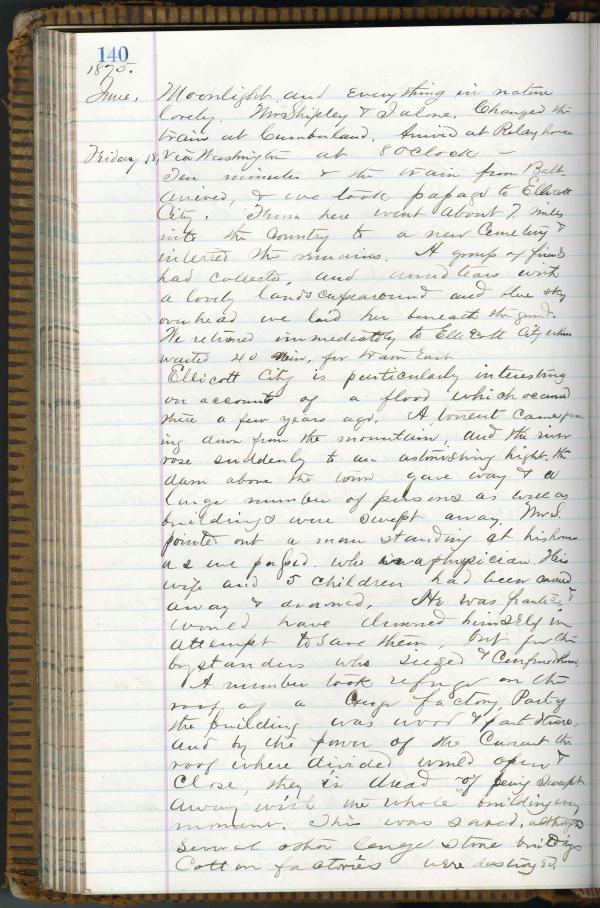 140
1875.
June, Moonlight and everything in nature
lovely. Mr Shipley & I alone. Changed the
train at Cumberland. Arrived at Relay house
Friday 18, Via Washington at 8 oclock —
Ten minutes & the train from Balt
arrived, & we took passage to Ellicott
City. From here went about 7 miles
into the Country to a new Cemetery &
interred the remains. A group of friends
had collected, and amid tears with
a lovely landscape around and blue sky
overhead we laid her beneath the ground.
We retired immediately to Ellicott City where
waited 40 min, for train East
Ellicott City is particularly interesting
on account of a flood which occured
there a few years ago. A torrent came pour
ing down from the mountain, and the river
rose suddenly to an astonishing hight. the
dam above the town gave way & a
large number of persons as well as
buildings were swept away. Mr S.
pointed out a man standing at his home
as we passed. who was a physician. His
wife and 5 children had been carried
away & drowned. He was frantic, &
would have drowned himself in
attempt to save them, but for the
bystanders who siezed & confined him.
A number took refuge on the
roof of a large factory. Part of
the building was wood & part stone.
and by the power of the current the
roof where divided would open &
close, they in dread of being swept
away with the whole building every
moment. This was saved, although
several other large stone buildings
Cotton factories were destroyed.